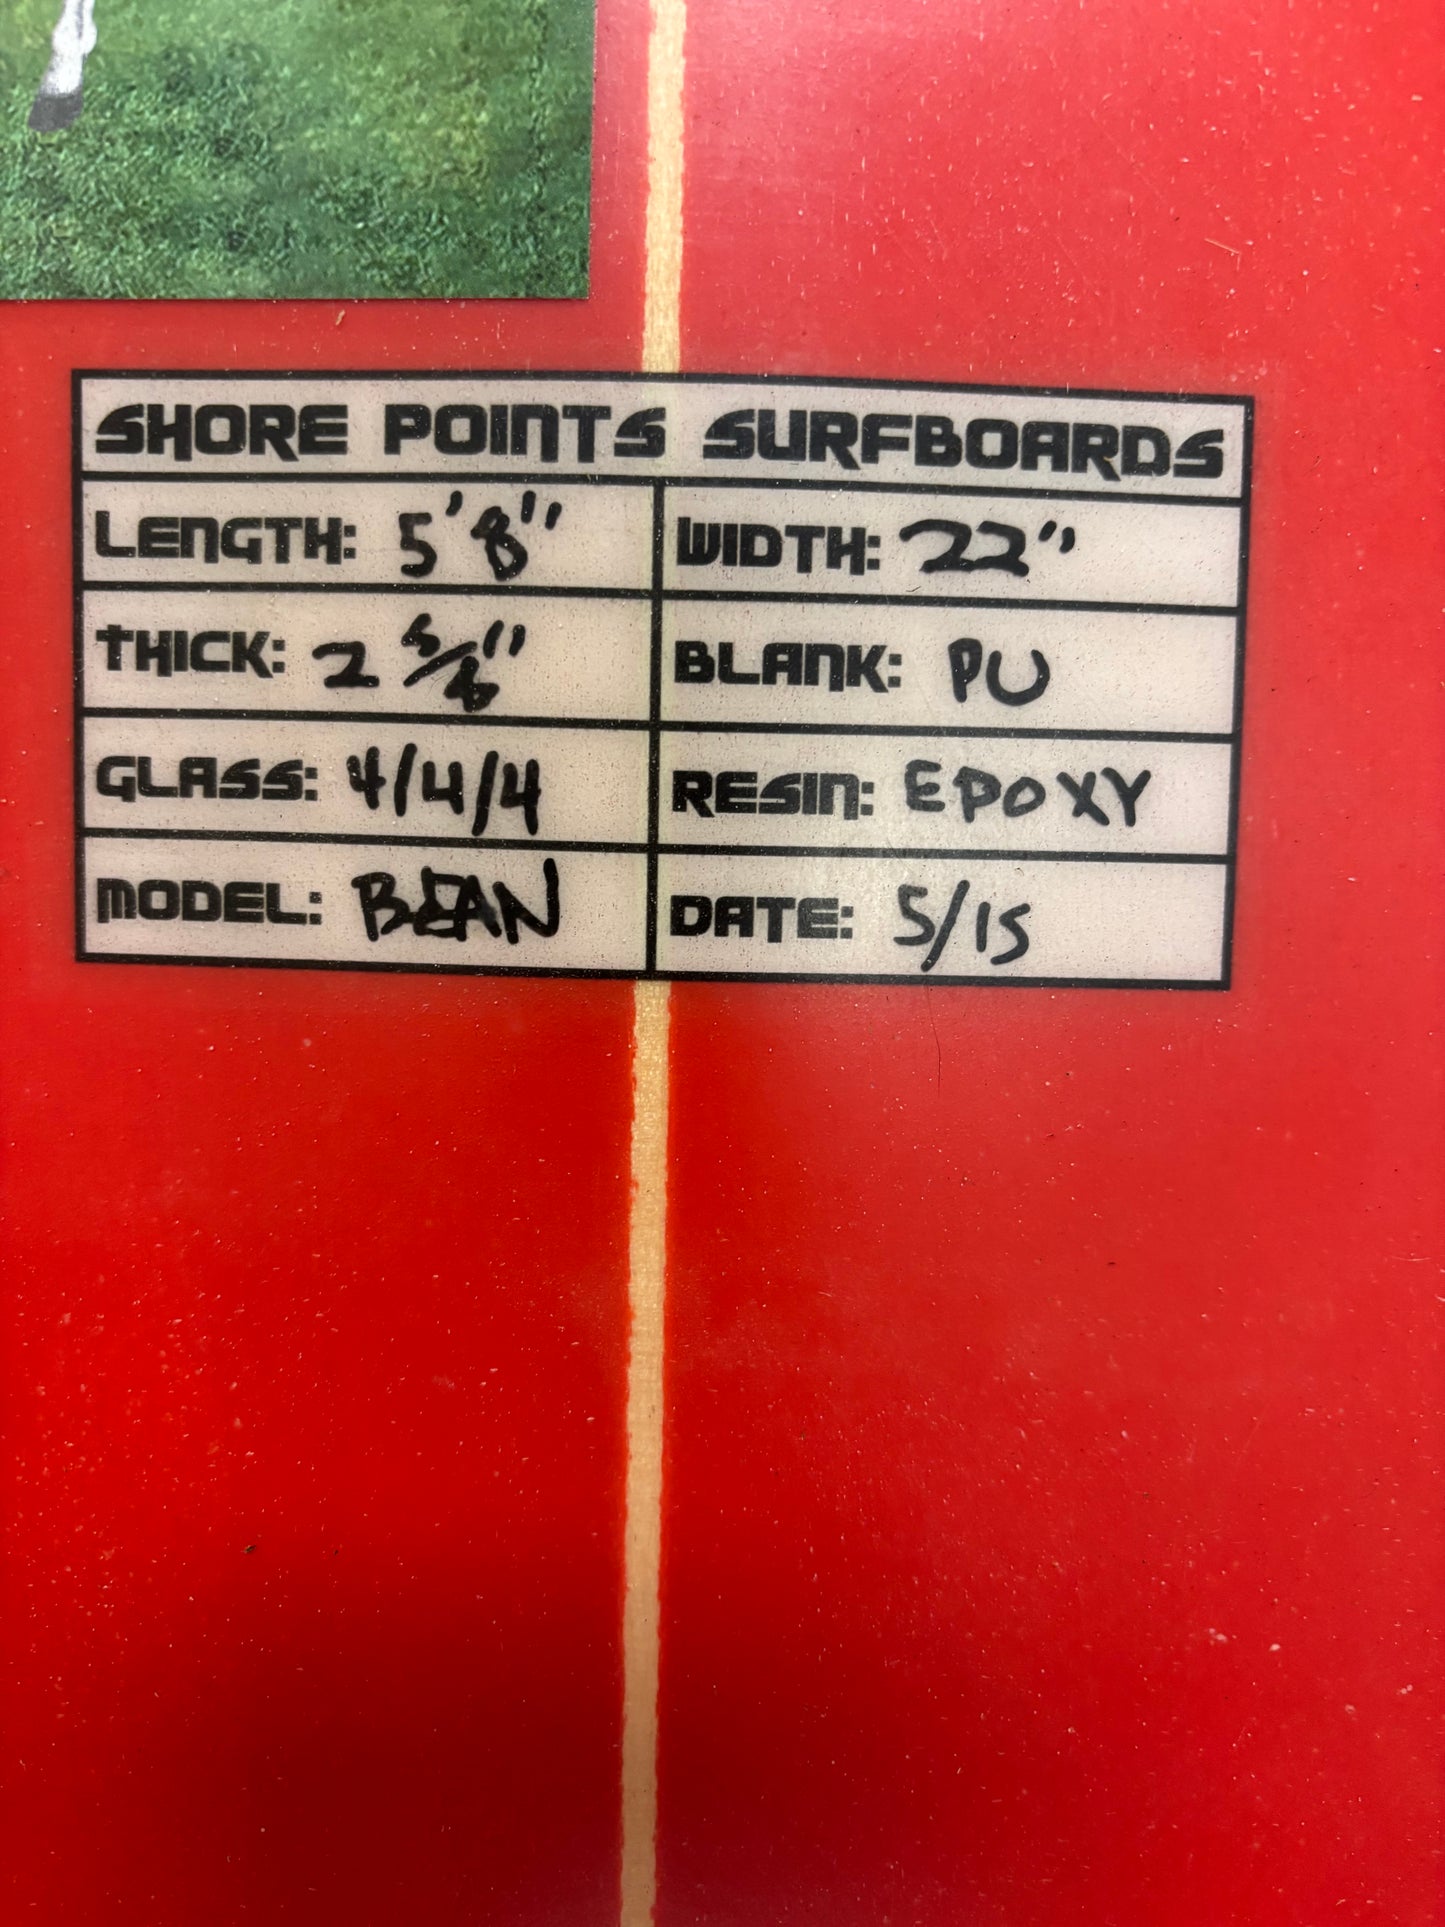 SHORE POINTS SURFBOARDS
LENGTH: 5'8" WIDTH: 22"
THICK: 2 5/8" BLANK: PU
GLASS: 4/4/4 RESIN: EPOXY
MODEL: BEAN DATE: 5/15